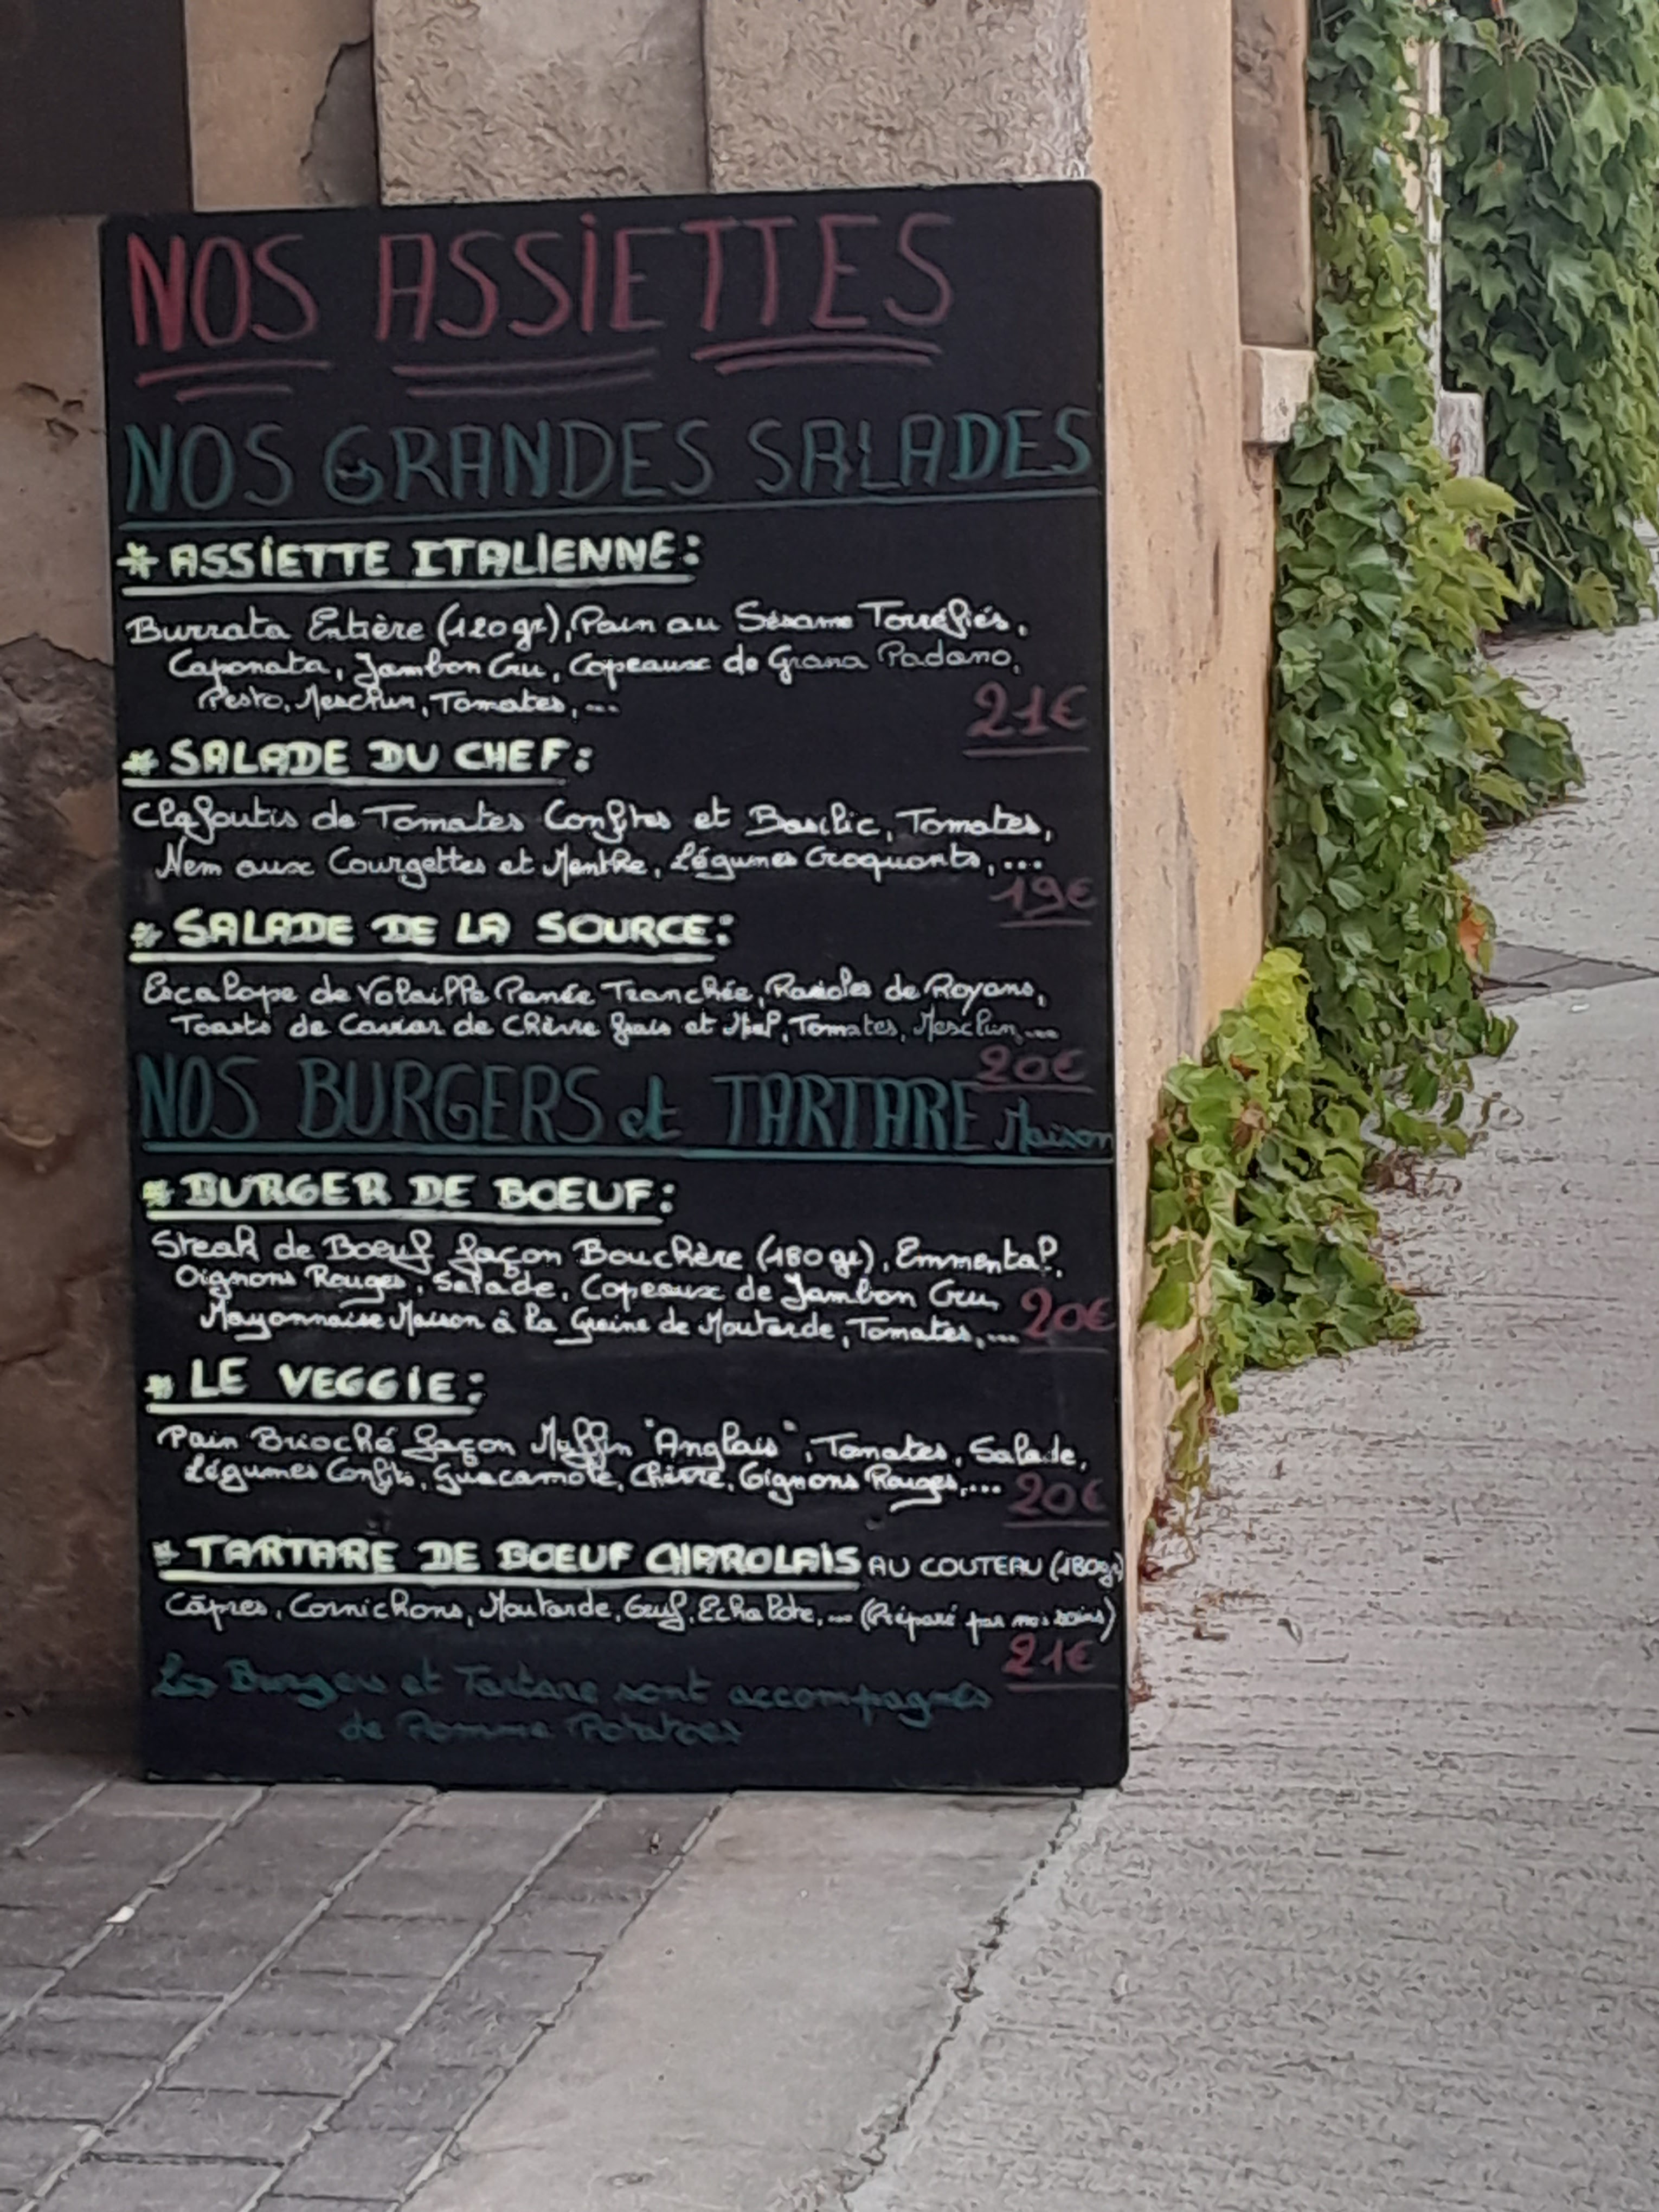 NOS ASSIETTES
NOS GRANDES SALADES
* ASSIETTE ITALIENNE:
Burrata Entière (120gr), Pain au Sésame Torréfiés,
Caponata, Jambon Cru, Copeaux de Grana Padano,
Pesto, Mesclun, Tomates, ...
21€
* SALADE DU CHEF:
Clafoutis de Tomates Confites et Basilic, Tomates,
Nem aux Courgettes et Menthe, Légumes Croquants, ...
19€
* SALADE DE LA SOURCE:
Escalope de Volaille Panée Tranchée, Ravioles de Royans,
Toasts de Caviar de Chèvre frais et Miel, Tomates, Mesclun, ...
20€
NOS BURGERS et TARTARE Maison
* BURGER DE BOEUF:
Steak de Boeuf façon Bouchère (180gr), Emmental,
Oignons Rouges, Salade, Copeaux de Jambon Cru,
Mayonnaise Maison à la Graine de Moutarde, Tomates, ... 20€
* LE VEGGIE:
Pain Brioché façon Muffin "Anglais", Tomates, Salade,
Légumes Confits, Guacamole, Chèvre, Oignons Rouges, ... 20€
* TARTARE DE BOEUF CHAROLAIS AU COUTEAU (180gr)
Câpres, Cornichons, Moutarde, Oeuf, Echalote, ... (Préparé par nos soins)
21€
Les Burgers et Tartare sont accompagnés
de Pomme Potatoes